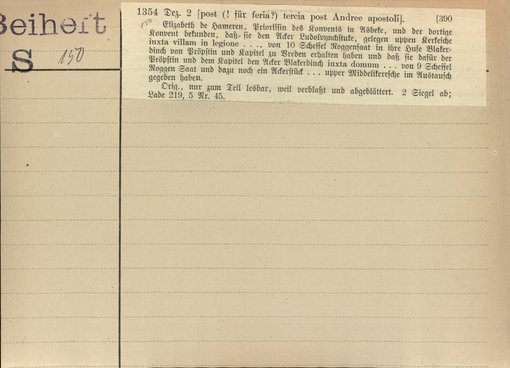 Beiheft
S 150
1354 Dez. 2 [post (! für feria?) tercia post Andree apostoli]. [390
150 Elizabeth de Hameren, Priorissin des Konvents in Asbeke, und der dortige
Konvent bekunden, daß sie den Acker Ludolvynchstuke, gelegen uppen Kerkesche
iuxta villam in legione . . ., von 10 Scheffel Roggensaat in ihre Hufe Blaker-
dinch von Pröpstin und Kapitel zu Vreden erhalten haben und daß sie dafür der
Pröpstin und dem Kapitel den Acker Blakerdinch iuxta domum . . . von 9 Scheffel
Roggen Saat und dazu noch ein Ackerstück . . . upper Middelikersche im Austausch
gegeben haben.
Orig., nur zum Teil lesbar, weil verblaßt und abgeblättert. 2 Siegel ab;
Lade 219, 5 Nr. 45.